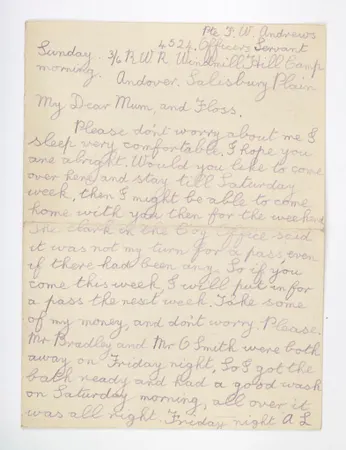 Pte F. W. Andrews
4524. Officers Servant
Sunday. 3/6 R W R Windmill Hill Camp
morning. Andover. Salisbury Plain
My Dear Mum and Floss.
Please dont worry about me I
sleep very comfortable. I hope you
are alright. Would you like to come
over here and stay till Saturday
week, then I might be able to come
home with you then for the weekend
The clark in the Coy Office said
it was not my turn for a pass, even
if there had been any. So if you
come this week, I will put in for
a pass the next week. Take some
of my money, and dont worry Please.
Mr Bradley and Mr O Smith were both
away on Friday night, So I got the
bath ready and had a good wash
on Saturday morning, all over it
was all right. Friday night A L